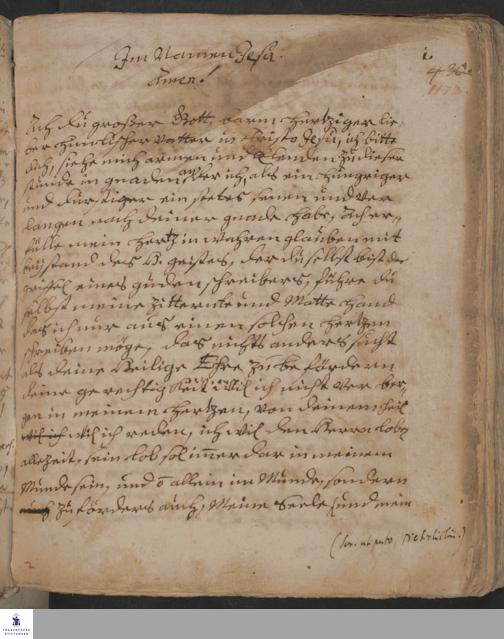 Im Namen Jesu.
Amen!
1.
Ach du großer Gott barmhertziger lie-
ber himlischer Vatter in Christo Jesu, ich bitte
dich, siehe mich armen und Elenden zu dieser
stunde in gnaden an, der ich, als ein hungriger
und durstiger ein stetes senen und ver
langen nach deiner gnade habe, Ach er-
fülle mein hertz in wahren glauben mit
beystand des H. geistes, der du selbst bist der
griffel eines guden schreibers, führe du
selbst meine zitternte und Matte Hand
das ich nur aus einen solchen hertzen
schreiben möge, das nichts anders sucht
als deine Heilige Ehre zu be fördern
deine gerechtigkeit will ich nicht ver ber-
ge in meinem hertzen, von deinem heil
wil ich reden, ich wil den Herrn lobe
allezeit, sein lob sol immerdar in meinem
Munde sein, und allein im Munde, sondern
zu förders auch, Meine Seele und mein
2
FRANCKESCHE
STIFTUNGEN